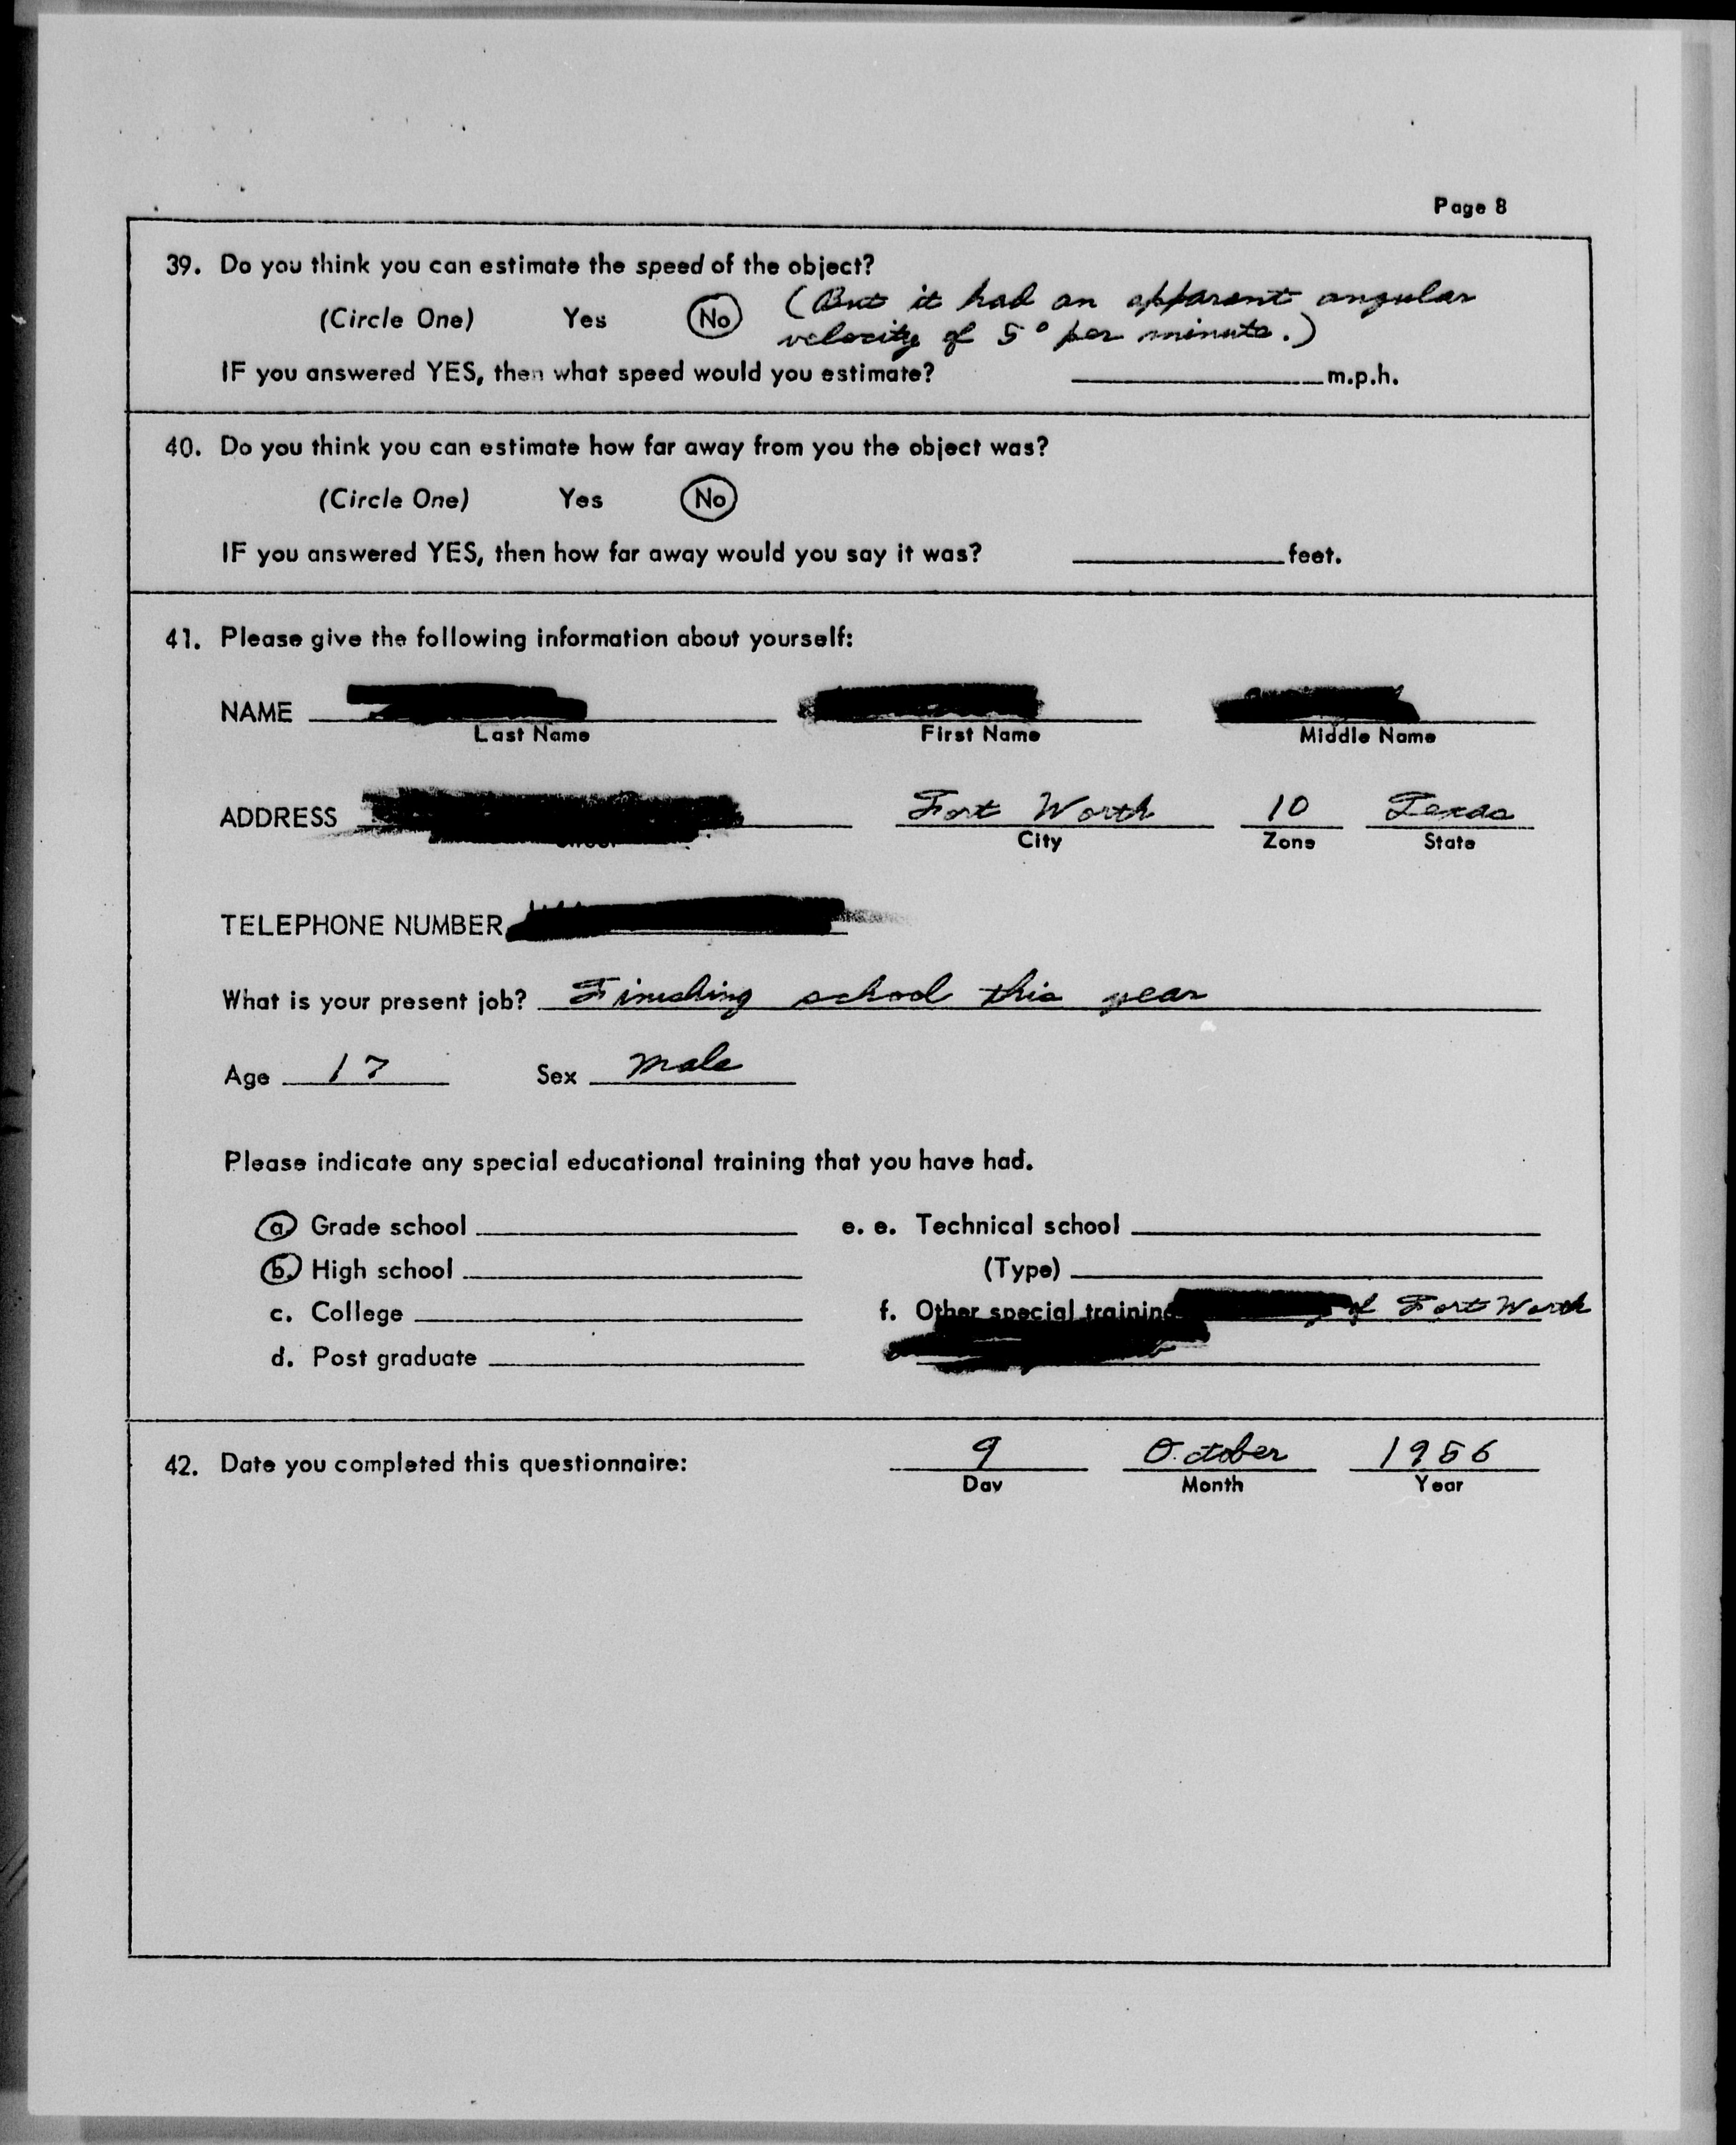 Page 8
39. Do you think you can estimate the speed of the object?
(Circle One) Yes No (But it had an apparent angular
velocity of 5° per minute.)
IF you answered YES, then what speed would you estimate? m.p.h.
40. Do you think you can estimate how far away from you the object was?
(Circle One) Yes No
IF you answered YES, then how far away would you say it was? feet.
41. Please give the following information about yourself:
NAME
Last Name First Name Middle Name
ADDRESS Fort Worth 10 Texas
City Zone State
TELEPHONE NUMBER
What is your present job? Finishing school this year
Age 17 Sex Male
Please indicate any special educational training that you have had.
a. Grade school e. e. Technical school
b. High school (Type)
c. College f. Other special training of Fort Worth
d. Post graduate
42. Date you completed this questionnaire: 9 October 1956
Day Month Year